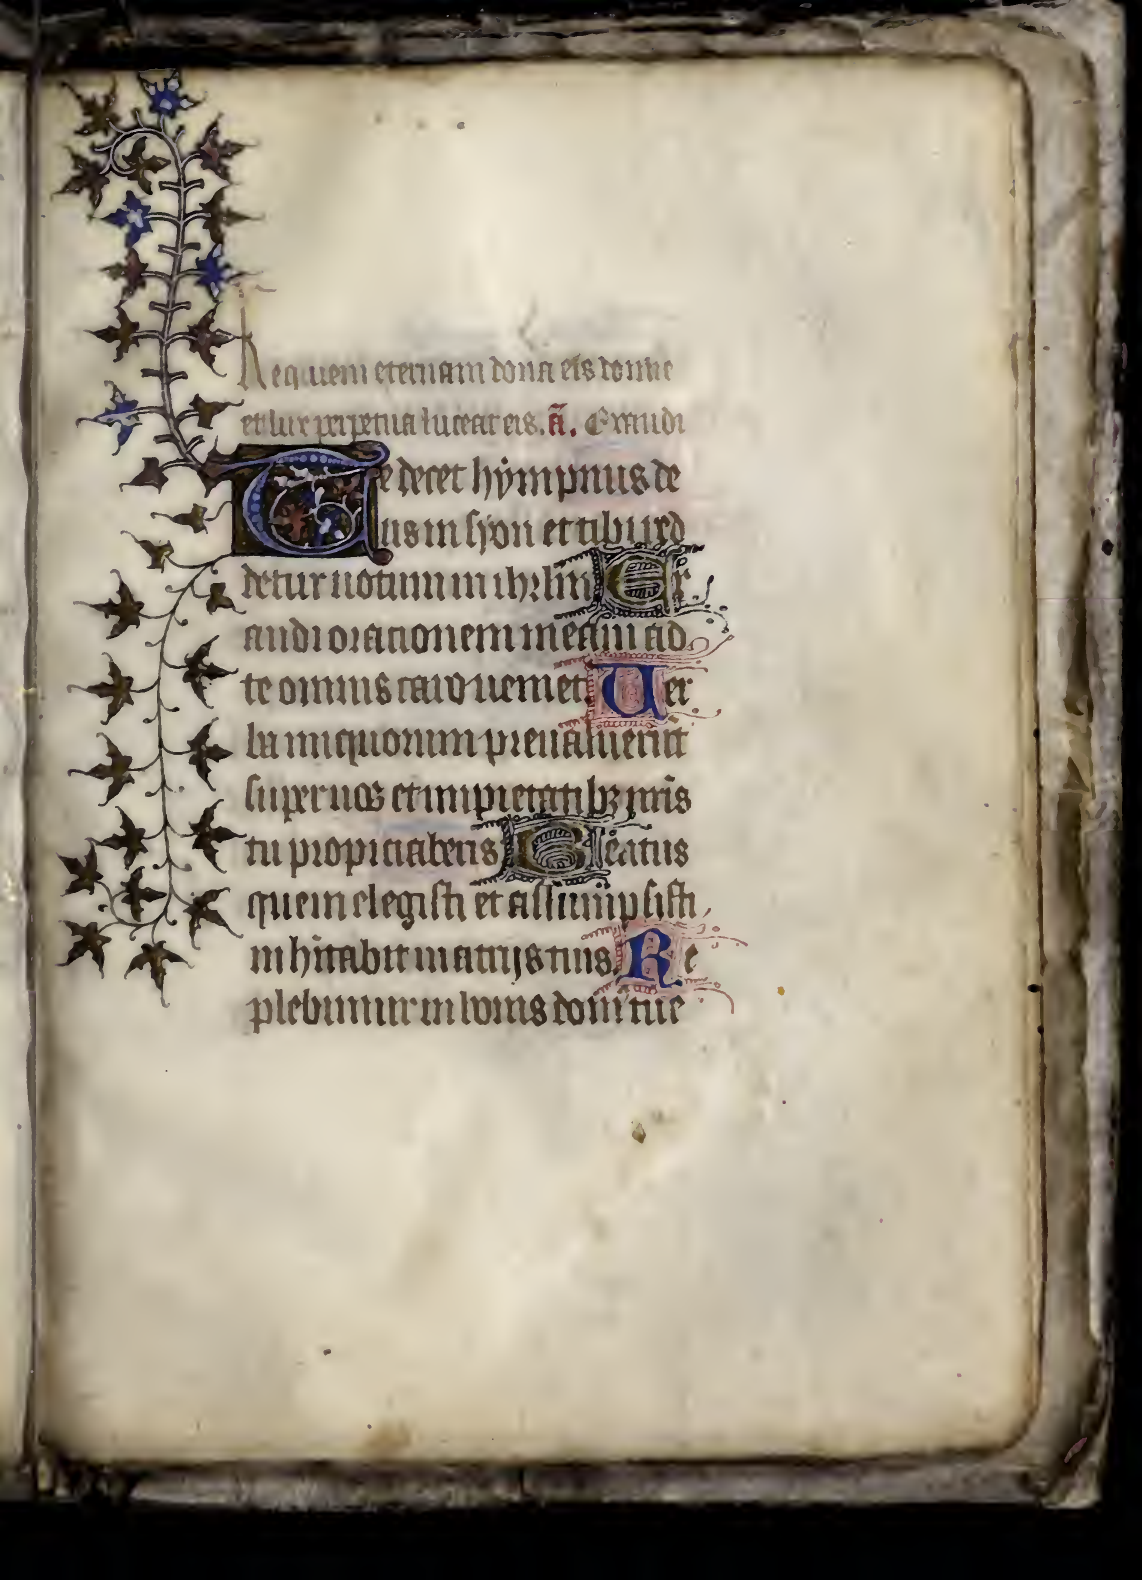 Requiem eternam dona eis domine
et lux perpetua luceat eis. ā. Exaudi
Te decet hympnus de
us in syon et tibi red
detur uotum in ihrlm Ex
audi orationem meam ad
te omnis caro ueniet Uer
ba iniquorum preualuerūt
super nos et impietatibꝫ nr̄is
tu propiciaberis Beatus
quem elegisti et assumpsisti
inhītabit in atrijs tuis Re
plebimur in bonis dom̄ tue